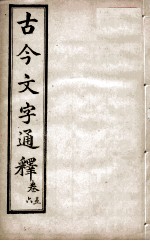 古今文字通釋
卷五六